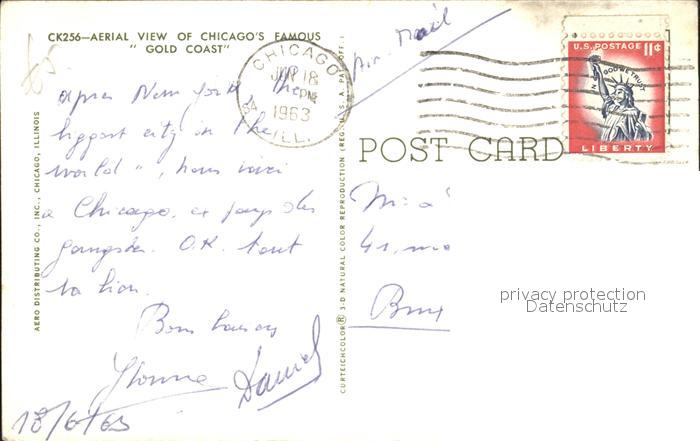 CK256—AERIAL VIEW OF CHICAGO'S FAMOUS
" GOLD COAST"
après New York, "the
biggest city in the
world", nous voici
a Chicago, le pays des
gangster. O.K. tout
va bien.
Yvonne Daniel
18/6/63
AERO DISTRIBUTING CO., INC., CHICAGO, ILLINOIS
CURTEICHCOLOR® 3-D NATURAL COLOR REPRODUCTION (REG. U.S.A. PAT. OFF.)
CHICAGO
JUN 18
PM
1963
ILL.
Air Mail
U.S. POSTAGE 11¢
IN GOD WE TRUST
LIBERTY
POST CARD
41,
privacy protection
Datenschutz